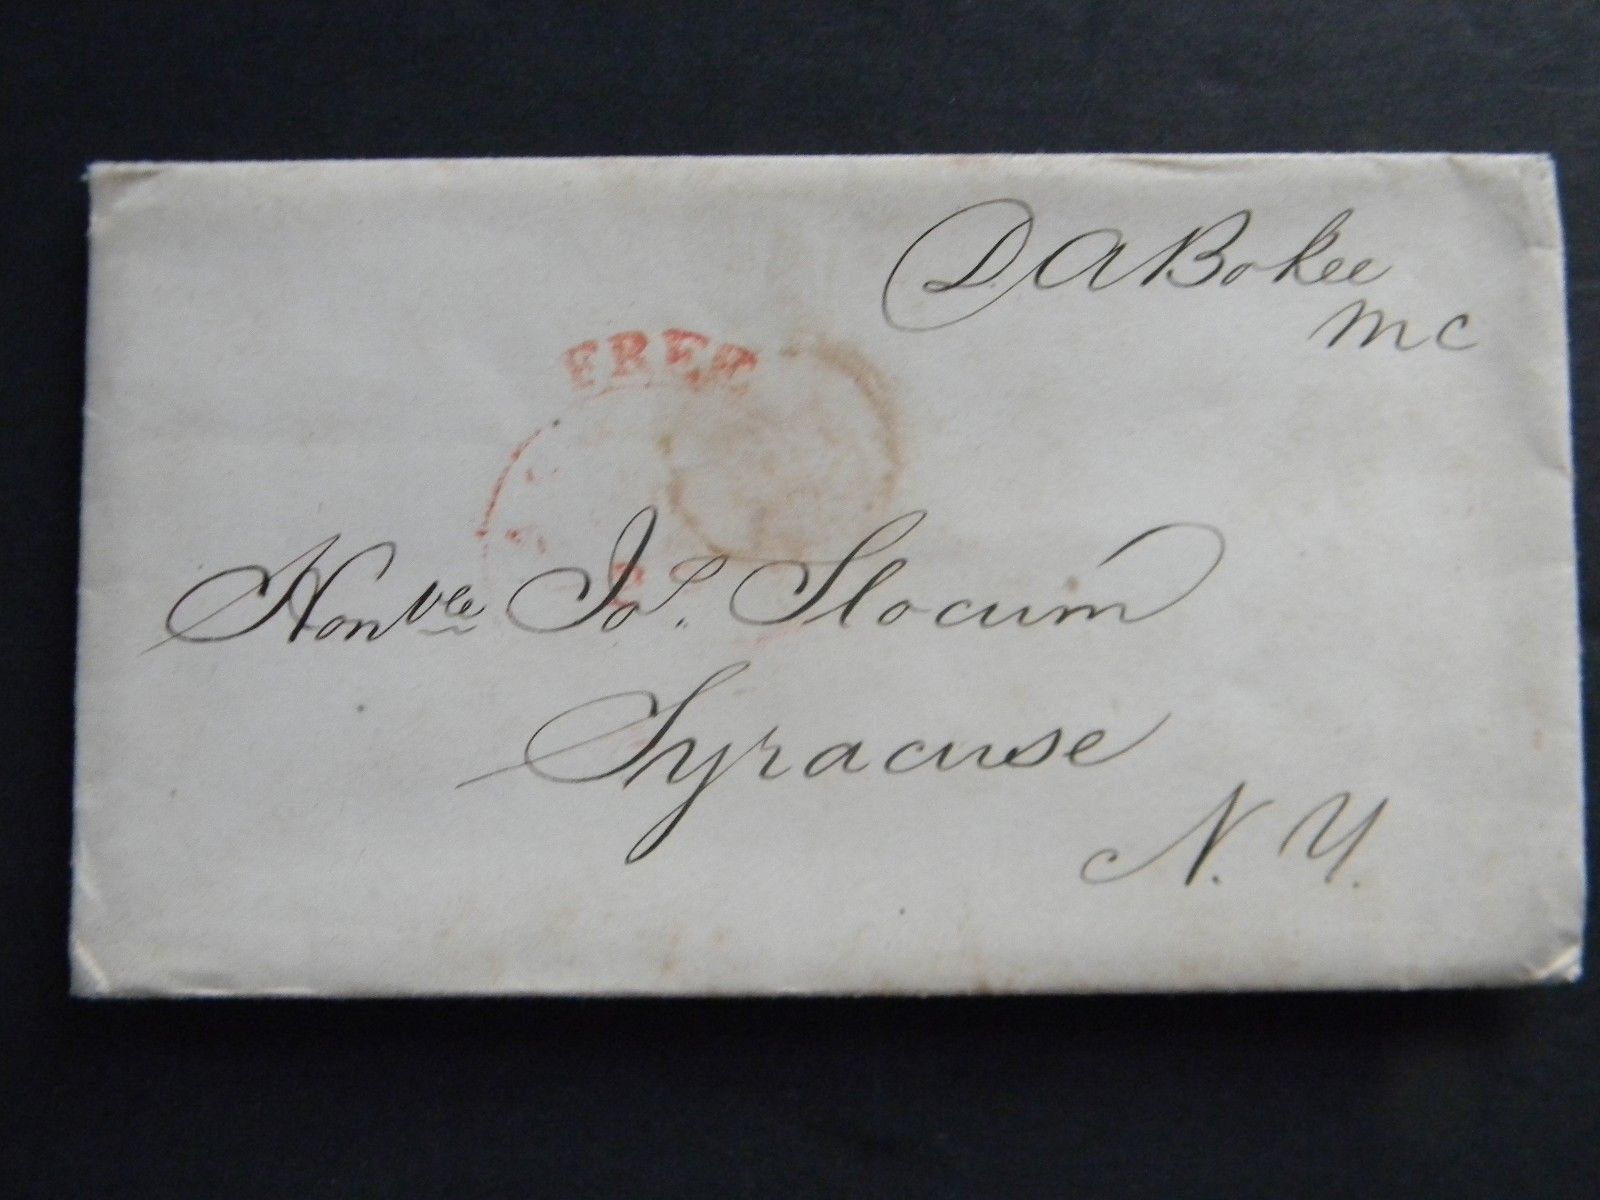 D. A Bokee
M C
FREE
Honble Jos. Slocum
Syracuse
N. Y.